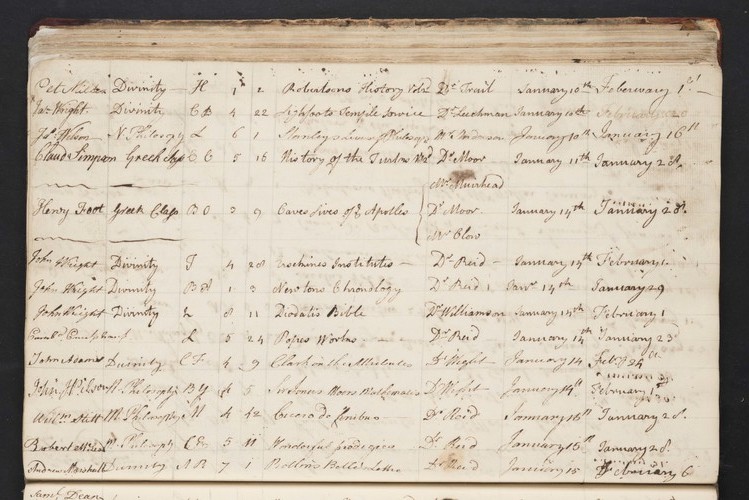 Divinity - H 1 2 Robertsons History Vol 2d Dr Trail January 10th Feberwary 1st
Jas Wright Divinity CB 4 22 Lightfoots Temple Service Dr Leechman January 10th
Jas Wilson N. Philosophy L 6 1 Stanleys Lives of Philosop Mr Anderson January 10th January 16th
Claud Simpson Greek C 5 16 History of the Turks Dr Moor January 11th January 28
Mr Muirhead
Henry Foot Greek Class 3 9 Caves Lives of ye Apostles Dr Moor January 14th January 28
Mr Clow
John Wright Divinity T 4 28 Institutes - Dr Reid - January 14th February 1
John Wright Divinity 1 3 Newtons Chronology Dr Reid Janry 14th January 29
John Wright Divinity L 8 11 Diodatis Bible Dr Williamson January 14th February 1
L 5 24 Popes Works Dr Reid January 14th January 23
John Adams Divinity CF 4 9 Clark on the Attributes Dr Wight January 14 24
John Philosophy BY 4 5 Sir Jonas Moors Mathematics Dr Wight January 14th February
M Philosophy N 4 12 Cicero De finibus Dr Reid January 16th January 28
Robert Philosophy 5 11 Wonderful prodegies Dr Reid January 16th January 28
Andrew Marshall Divinity AR 7 1 Rollins Belles Lettre Dr Reid January 15 February 6
Saml Dean